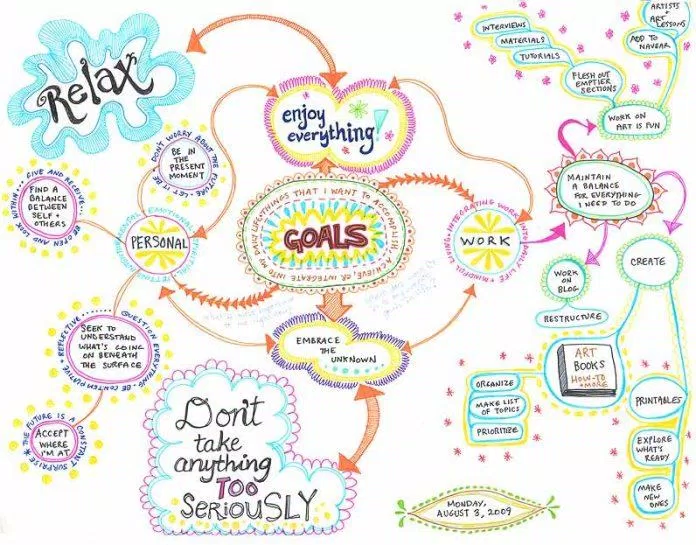 Relax
enjoy
everything!
INTERVIEWS
MATERIALS
TUTORIALS
FLESH OUT
EMPTIER
SECTIONS
ARTISTS
+
ART
LESSONS
ADD TO
NAVBAR
WORK ON
ART IS FUN
DON'T WORRY ABOUT THE FUTURE • LET IT BE
BE IN
THE
PRESENT
MOMENT
GIVE AND RECEIVE
BE OPEN AND LOOK WITHIN
FIND A
BALANCE
BETWEEN
SELF +
OTHERS
EMOTIONAL
PERSONAL
THINGS THAT I WANT TO ACCOMPLISH, ACHIEVE, OR INTEGRATE INTO MY DAILY LIFE
GOALS
INTEGRATING WORK INTO DAILY LIFE • MINDFUL LIVING
WORK
MAINTAIN
A BALANCE
FOR EVERYTHING
I NEED TO DO
WORK
ON
BLOG
RESTRUCTURE
CREATE
REFLECTIVE ...... QUESTION EVERYTHING • BE CONTEMPLATIVE +
SEEK TO
UNDERSTAND
WHAT'S GOING
ON BENEATH
THE SURFACE
EMBRACE
THE
UNKNOWN
THE FUTURE IS A CONSTANT SURPRISE
ACCEPT
WHERE
I'M AT
Don't
take
anything
TOO
SERIOUSLY
ART
BOOKS
HOW-TO
+ MORE
ORGANIZE
MAKE LIST
OF TOPICS
PRIORITIZE
PRINTABLES
EXPLORE
WHAT'S
READY
MAKE
NEW
ONES
MONDAY,
AUGUST 3, 2009